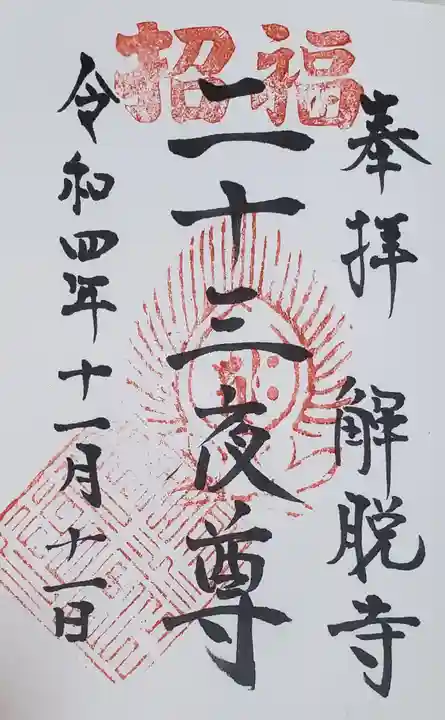 福招
奉拝 解脱寺
二十三夜尊
令和四年十一月十一日